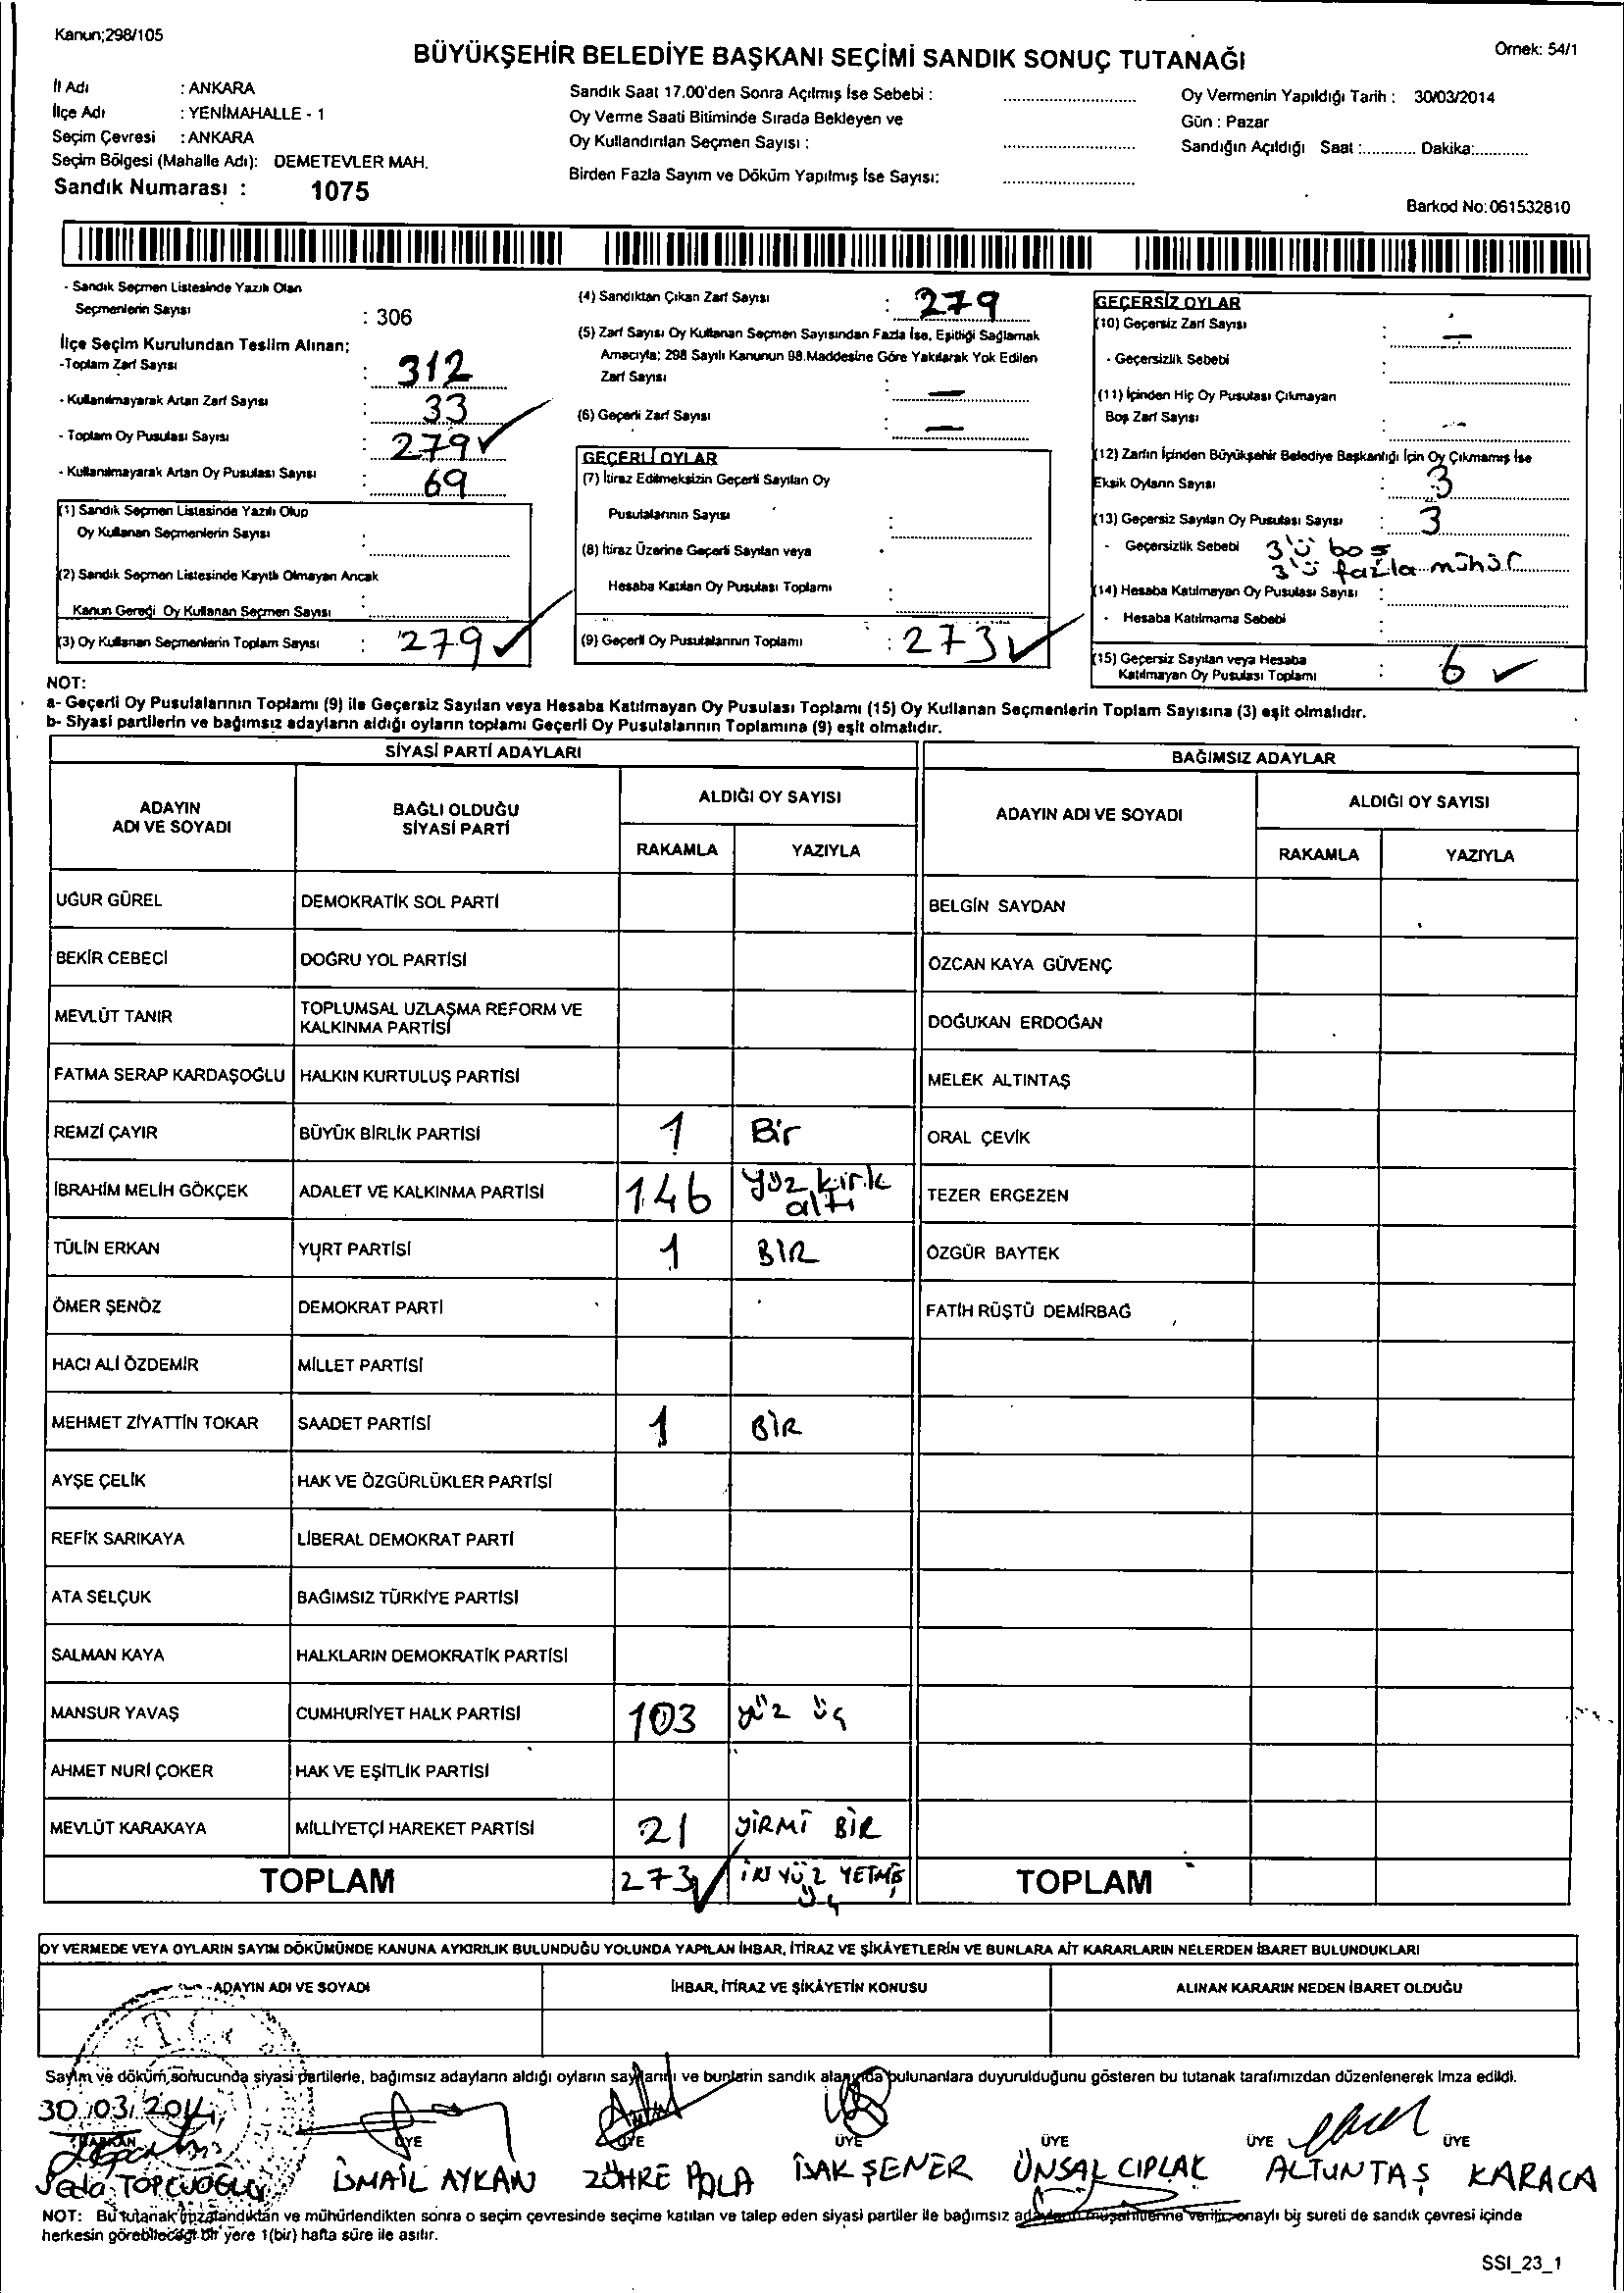 Kanun;298/105
BÜYÜKŞEHİR BELEDİYE BAŞKANI SEÇİMİ SANDIK SONUÇ TUTANAĞI
Örnek: 54/1
İl Adı : ANKARA
İlçe Adı : YENİMAHALLE - 1
Seçim Çevresi : ANKARA
Seçim Bölgesi (Mahalle Adı): DEMETEVLER MAH.
Sandık Numarası : 1075
Sandık Saat 17.00'den Sonra Açılmış İse Sebebi :
Oy Verme Saati Bitiminde Sırada Bekleyen ve
Oy Kullandırılan Seçmen Sayısı :
Birden Fazla Sayım ve Döküm Yapılmış İse Sayısı:
Oy Vermenin Yapıldığı Tarih : 30/03/2014
Gün : Pazar
Sandığın Açıldığı Saat :............ Dakika:............
Barkod No:061532810
- Sandık Seçmen Listesinde Yazılı Olan
Seçmenlerin Sayısı : 306
İlçe Seçim Kurulundan Teslim Alınan;
-Toplam Zarf Sayısı : 312
- Kullanılmayarak Artan Zarf Sayısı : 33
- Toplam Oy Pusulası Sayısı : 279
- Kullanılmayarak Artan Oy Pusulası Sayısı : 69
(1) Sandık Seçmen Listesinde Yazılı Olup
Oy Kullanan Seçmenlerin Sayısı :
(2) Sandık Seçmen Listesinde Kayıtlı Olmayan Ancak
Kanun Gereği Oy Kullanan Seçmen Sayısı :
(3) Oy Kullanan Seçmenlerin Toplam Sayısı : 279
(4) Sandıktan Çıkan Zarf Sayısı : 279
(5) Zarf Sayısı Oy Kullanan Seçmen Sayısından Fazla İse, Eşitliği Sağlamak
Amacıyla; 298 Sayılı Kanunun 98.Maddesine Göre Yakılarak Yok Edilen
Zarf Sayısı : —
(6) Geçerli Zarf Sayısı : —
GEÇERLİ OYLAR
(7) İtiraz Edilmeksizin Geçerli Sayılan Oy
Pusulalarının Sayısı :
(8) İtiraz Üzerine Geçerli Sayılan veya
Hesaba Katılan Oy Pusulası Toplamı :
(9) Geçerli Oy Pusulalarının Toplamı : 273
GEÇERSİZ OYLAR
(10) Geçersiz Zarf Sayısı : —
- Geçersizlik Sebebi :
(11) İçinden Hiç Oy Pusulası Çıkmayan
Boş Zarf Sayısı : --
(12) Zarfın İçinden Büyükşehir Belediye Başkanlığı İçin Oy Çıkmamış İse
Eksik Oyların Sayısı : 3
(13) Geçersiz Sayılan Oy Pusulası Sayısı : 3
- Geçersizlik Sebebi 3'ü boş
3'ü fazla mühür
(14) Hesaba Katılmayan Oy Pusulası Sayısı :
- Hesaba Katılmama Sebebi :
(15) Geçersiz Sayılan veya Hesaba
Katılmayan Oy Pusulası Toplamı : 6
NOT:
a- Geçerli Oy Pusulalarının Toplamı (9) ile Geçersiz Sayılan veya Hesaba Katılmayan Oy Pusulası Toplamı (15) Oy Kullanan Seçmenlerin Toplam Sayısına (3) eşit olmalıdır.
b- Siyasi partilerin ve bağımsız adayların aldığı oyların toplamı Geçerli Oy Pusulalarının Toplamına (9) eşit olmalıdır.
SİYASİ PARTİ ADAYLARI BAĞIMSIZ ADAYLAR
ADAYIN ADI VE SOYADI BAĞLI OLDUĞU SİYASİ PARTİ ALDIĞI OY SAYISI ADAYIN ADI VE SOYADI ALDIĞI OY SAYISI
RAKAMLA YAZIYLA RAKAMLA YAZIYLA
UĞUR GÜREL DEMOKRATİK SOL PARTİ BELGİN SAYDAN
BEKİR CEBECİ DOĞRU YOL PARTİSİ ÖZCAN KAYA GÜVENÇ
MEVLÜT TANIR TOPLUMSAL UZLAŞMA REFORM VE KALKINMA PARTİSİ DOĞUKAN ERDOĞAN
FATMA SERAP KARDAŞOĞLU HALKIN KURTULUŞ PARTİSİ MELEK ALTINTAŞ
REMZİ ÇAYIR BÜYÜK BİRLİK PARTİSİ 1 Bir ORAL ÇEVİK
İBRAHİM MELİH GÖKÇEK ADALET VE KALKINMA PARTİSİ 146 yüz kırk altı TEZER ERGEZEN
TÜLİN ERKAN YURT PARTİSİ 1 BİR ÖZGÜR BAYTEK
ÖMER ŞENÖZ DEMOKRAT PARTİ FATİH RÜŞTÜ DEMİRBAĞ
HACI ALİ ÖZDEMİR MİLLET PARTİSİ
MEHMET ZİYATTİN TOKAR SAADET PARTİSİ 1 BİR
AYŞE ÇELİK HAK VE ÖZGÜRLÜKLER PARTİSİ
REFİK SARIKAYA LİBERAL DEMOKRAT PARTİ
ATA SELÇUK BAĞIMSIZ TÜRKİYE PARTİSİ
SALMAN KAYA HALKLARIN DEMOKRATİK PARTİSİ
MANSUR YAVAŞ CUMHURİYET HALK PARTİSİ 103 yüz üç
AHMET NURİ ÇOKER HAK VE EŞİTLİK PARTİSİ
MEVLÜT KARAKAYA MİLLİYETÇİ HAREKET PARTİSİ 21 YİRMİ BİR
TOPLAM 273 İKİ YÜZ YETMİŞ ÜÇ TOPLAM
OY VERMEDE VEYA OYLARIN SAYIM DÖKÜMÜNDE KANUNA AYKIRILIK BULUNDUĞU YOLUNDA YAPILAN İHBAR, İTİRAZ VE ŞİKÂYETLERİN VE BUNLARA AİT KARARLARIN NELERDEN İBARET BULUNDUKLARI
ADAYIN ADI VE SOYADI İHBAR, İTİRAZ VE ŞİKÂYETİN KONUSU ALINAN KARARIN NEDEN İBARET OLDUĞU
Sayım ve döküm sonucunda siyasi partilerle, bağımsız adayların aldığı oyların sayılarını ve bunların sandık alanında bulunanlara duyurulduğunu gösteren bu tutanak tarafımızdan düzenlenerek imza edildi.
30/03/2014
BAŞKAN ÜYE ÜYE ÜYE ÜYE ÜYE ÜYE
Seda TOPCUOĞLU İSMAİL AYKAN ZÖHRE POLA İSAK ŞENER ÜNSAL CIPLAK ALTUNTAŞ KARACA
NOT: Bu tutanak imzalandıktan ve mühürlendikten sonra o seçim çevresinde seçime katılan ve talep eden siyasi partiler ile bağımsız adayların müşahitlerine verilir, onaylı bir sureti de sandık çevresi içinde
herkesin görebileceği bir yere 1(bir) hafta süre ile asılır.
SSI_23_1